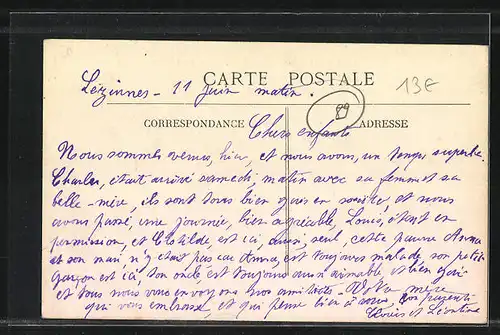 CARTE POSTALE
Lézinnes - 11 juin matin.
13€
89
CORRESPONDANCE
ADRESSE
Chers enfants
Nous sommes venus, hier, et nous avons, un temps superbe
Charles, était arrivé samedi, matin avec sa femme et sa
belle-mère, ils sont tous bien et nous
avons passé, une journée, bien agréable, Louis, étant en
permission, et Clotilde, est ici, aussi, seul, cette pauvre Anna
et son mari n'y était pas car Anna, est toujours malade, son petit
garçon est ici, ton oncle, est toujours aussi aimable, et bien gai
et tous nous vous envoyons nos amitiés - Votre mère
qui vous embrasse, et qui pense bien à vous,
Louis et Léontine